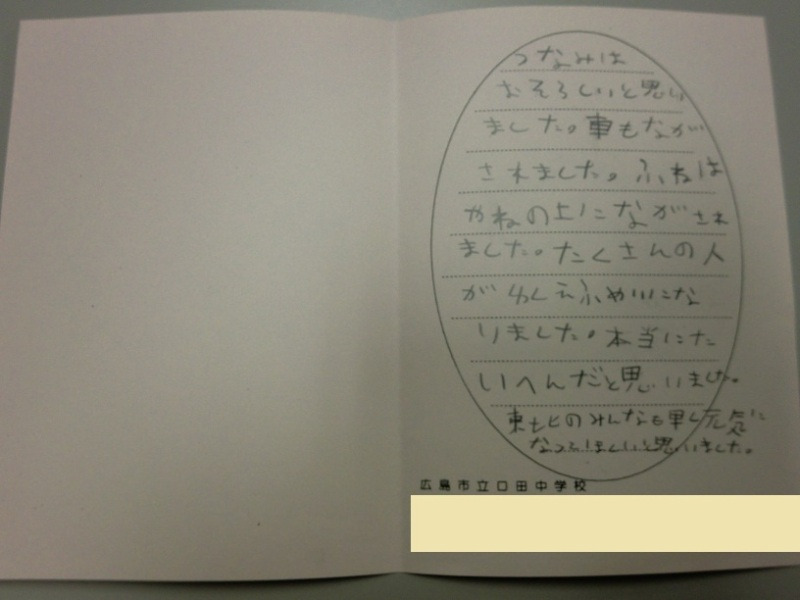 つなみは
おそろしいと思い
ました。車もなが
されました。ふねは
やねの上にながされ
ました。たくさんの人
がゆくえふめいにな
りました。本当にた
いへんだと思いました。
東北のみんなも早く元気に
なってほしいと思いました。
広島市立口田中学校